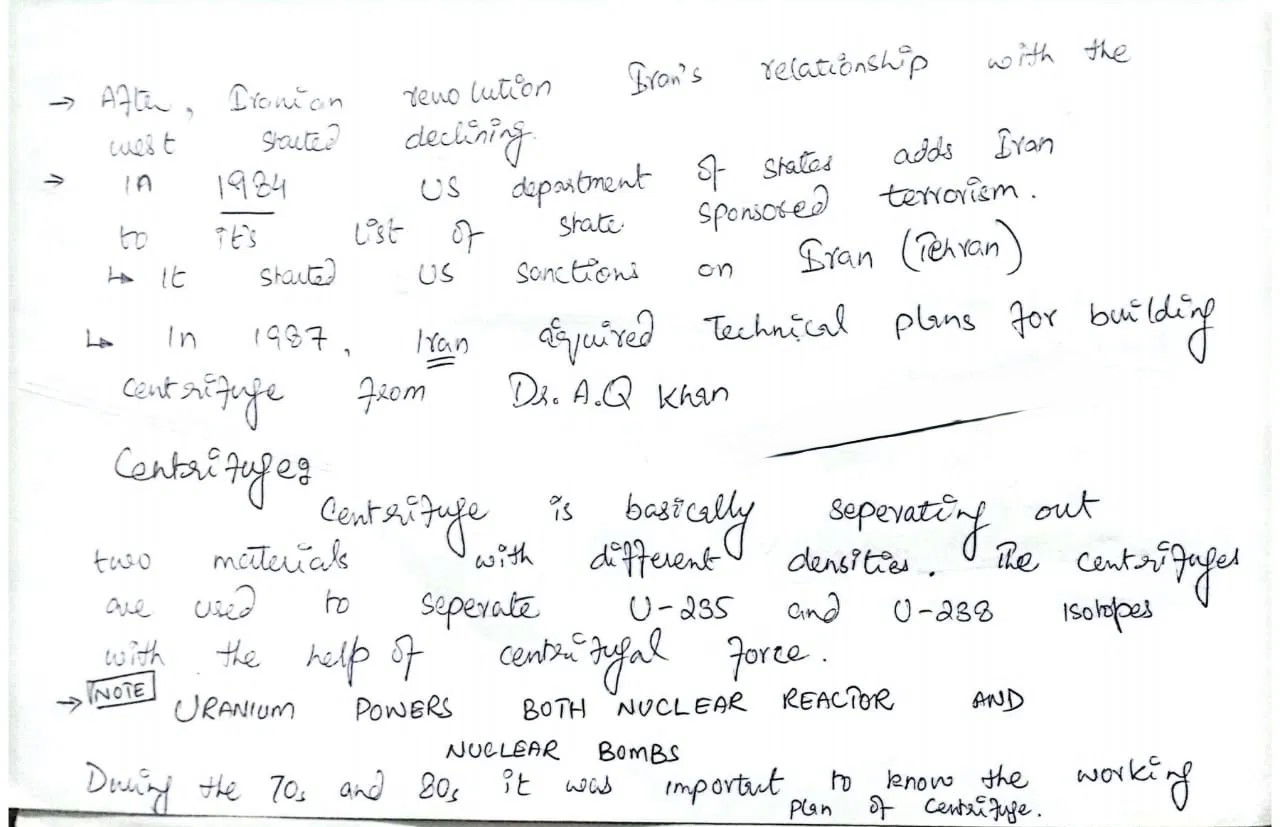 → After, Iranian revolution Iran's relationship with the
west started declining.
→ In 1984 US department of states adds Iran
to it's list of state sponsored terrorism.
↳ It started US sanctions on Iran (Tehran)
↳ In 1987, Iran aquired technical plans for building
centrifuge from Dr. A.Q Khan
Centrifuges
Centrifuge is basically seperating out
two materials with different densities. The centrifuges
are used to seperate U-235 and U-238 isotopes
with the help of centrifugal force.
→ NOTE URANIUM POWERS BOTH NUCLEAR REACTOR AND
NUCLEAR BOMBS
During the 70s and 80s it was important to know the working
plan of centrifuge.